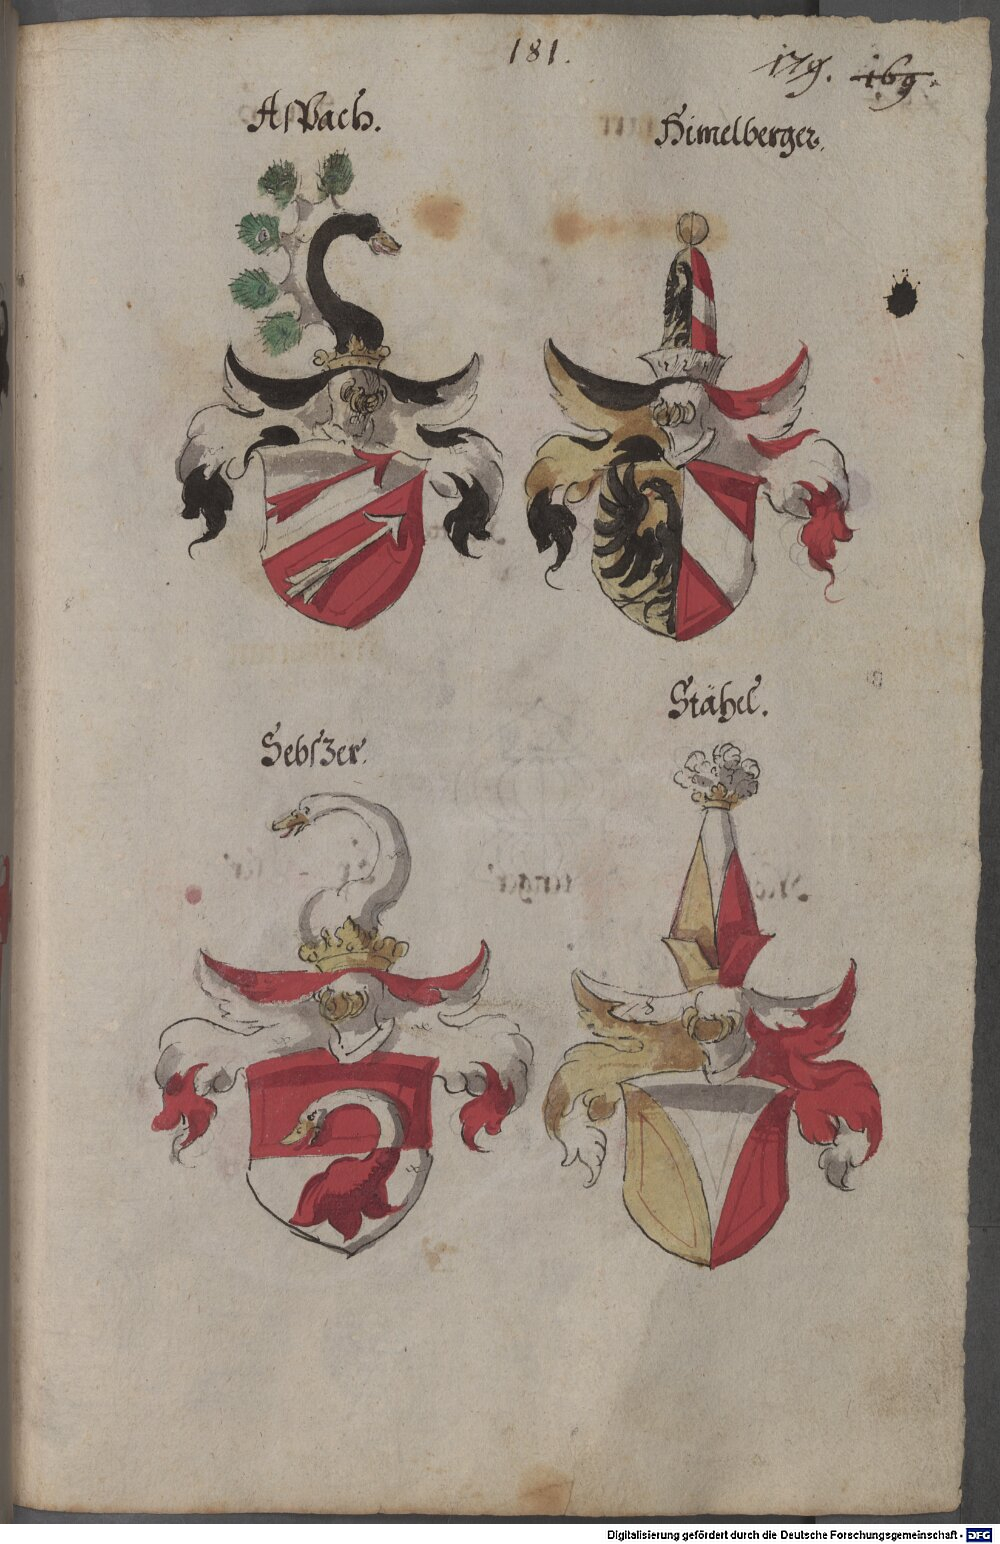 181.
179. 169.
Aspach.
Himelberger.
Sebszer.
Stähel.
Digitalisierung gefördert durch die Deutsche Forschungsgemeinschaft - DFG